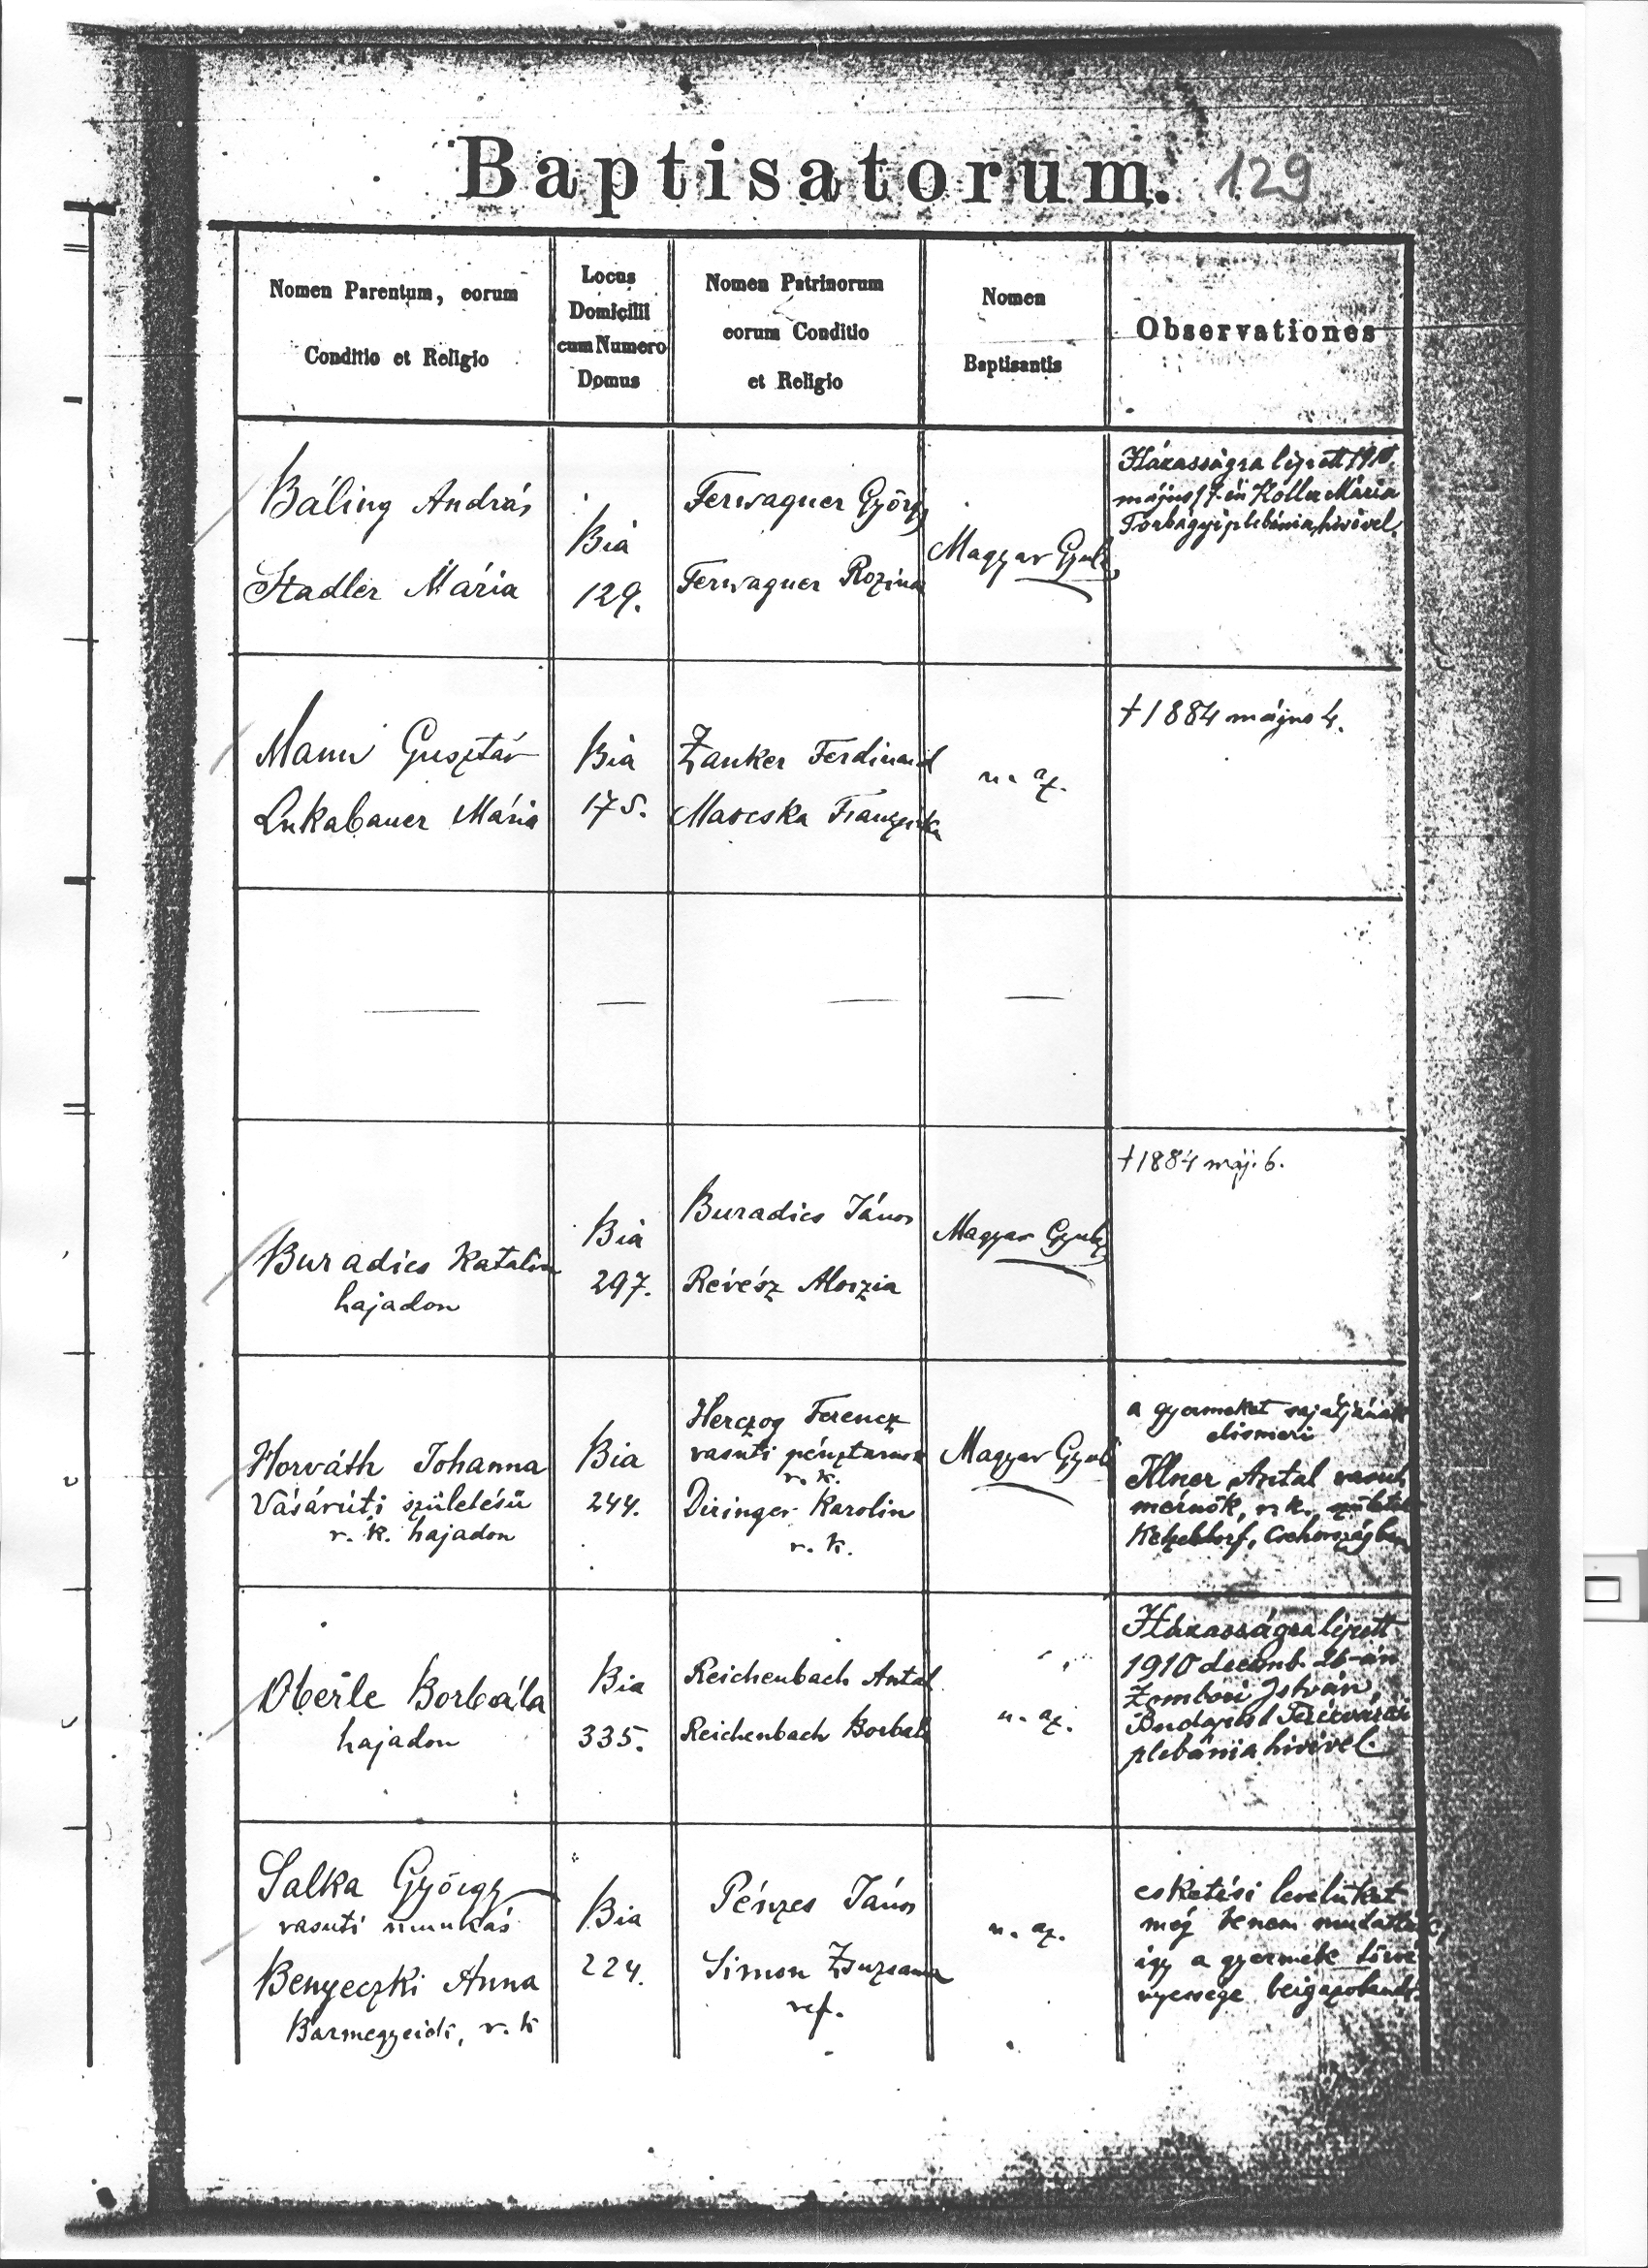 Baptisatorum. 129
Nomen Parentum, eorum
Conditio et Religio
Locus
Domicilii
cum Numero
Domus
Nomen Patrinorum
eorum Conditio
et Religio
Nomen
Baptisantis
Observationes
Báling András
Stadler Mária
Bia
129.
Ferwagner György
Ferwagner Rozina
Magyar Gyula
Házasságra lépett 1910.
május 17-én Koller Mária
Torbágyi plebánia hivével.
Mann Gusztáv
Lukabauer Mária
Bia
175.
Zanker Ferdinand
Marcska Franziska
u. az.
† 1884 május 4.
Buradics Katalin
hajadon
Bia
297.
Buradics János
Révész Aloizia
Magyar Gyula
† 1884 máj. 6.
Horváth Johanna
Vásárúti születésü
r. k. hajadon
Bia
244.
Herczog Ferencz
vasuti pénztarnok
r. k.
Diringer Karolin
r. k.
Magyar Gyula
a gyermeket sajátjának
elismeri
Illner Antal vasuti
mérnök, r. k.
Csehországban
Oberle Borbála
hajadon
Bia
335.
Reichenbach Antal
Reichenbach Borbala
u. az.
Házasságra lépett
1910 decemb. 26-án
Zombori István,
Budapest Terézvárosi
plebánia hivével.
Salka György
vasuti munkás
Benyeczki Anna
Barmegyeiek, r. k
Bia
224.
Pénzes János
Simon Zsuzsanna
ref.
u. az.
esketési levelüket
még be nem mutatták,
igy a gyermek törvé
nyessege beigazolandó.